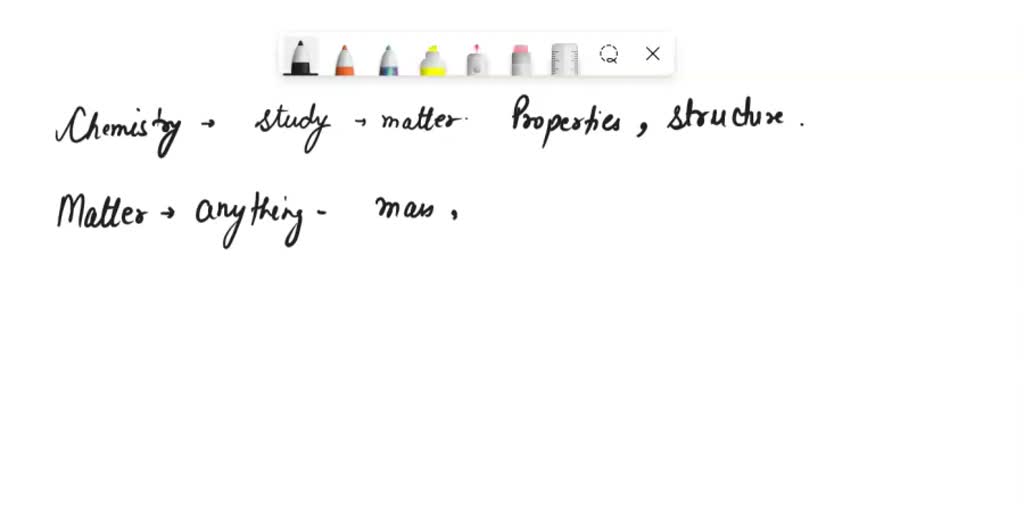 Chemistry → study → matter. Properties, structure.
Matter → anything - mass,